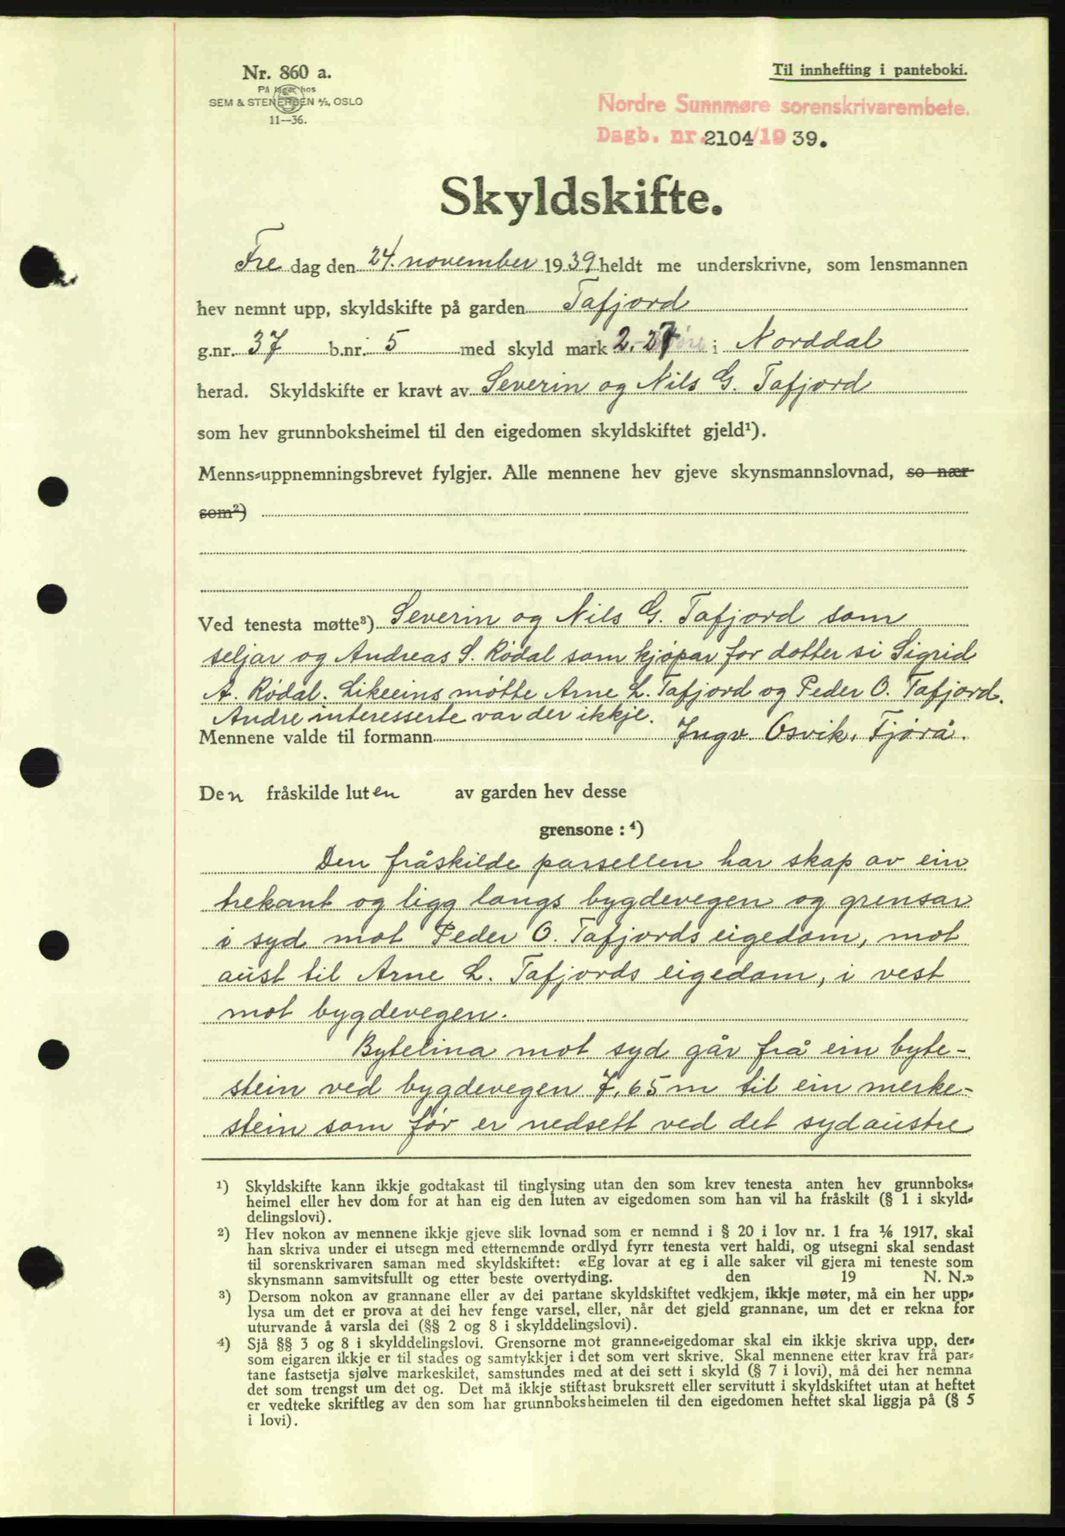 Nr. 860 a.
På lager hos
SEM & STENERSEN A/S, OSLO
11—36.
Til innhefting i panteboki.
Nordre Sunnmøre sorenskrivarembete.
Dagb. nr. 2104/19 39.
Skyldskifte.
Fredag den 24. november 1939 heldt me underskrivne, som lensmannen
hev nemnt upp, skyldskifte på garden Tafjord
g.nr. 37 b.nr. 5 med skyld mark 2.27 i Norddal
herad. Skyldskifte er kravt av Severin og Nils G. Tafjord
som hev grunnboksheimel til den eigedomen skyldskiftet gjeld¹).
Menns-uppnemningsbrevet fylgjer. Alle mennene hev gjeve skynsmannslovnad, so nær
som²)
Ved tenesta møtte³) Severin og Nils G. Tafjord som
seljar og Andreas S. Rødal som kjøpar for dotter si Sigrid
A. Rødal. Likeeins møtte Arne L. Tafjord og Peder O. Tafjord.
Andre interesserte var der ikkje.
Mennene valde til formann Ingv. Osvik, Fjørå.
Den fråskilde luten av garden hev desse
grensone : ⁴)
Den fråskilde parsellen har skap av ein
trekant og ligg langs bygdevegen og grensar
i syd mot Peder O. Tafjords eigedom, mot
aust til Arne L. Tafjords eigedom, i vest
mot bygdevegen.
Bytelina mot syd går frå ein byte-
stein ved bygdevegen 7,65 m til ein merke-
stein som før er nedsett ved det sydaustre
¹) Skyldskifte kann ikkje godtakast til tinglysing utan den som krev tenesta anten hev grunnboks-
heimel eller hev dom for at han eig den luten av eigedomen som han vil ha fråskilt (§ 1 i skyld-
delingslovi).
²) Hev nokon av mennene ikkje gjeve slik lovnad som er nemnd i § 20 i lov nr. 1 fra 1/6 1917, skal
han skriva under ei utsegn med etternemnde ordlyd fyrr tenesta vert haldi, og utsegni skal sendast
til sorenskrivaren saman med skyldskiftet: «Eg lovar at eg i alle saker vil gjera mi teneste som
skynsmann samvitsfullt og etter beste overtyding. den 19 N. N.»
³) Dersom nokon av grannane eller av dei partane skyldskiftet vedkjem, ikkje møter, må ein her upp-
lysa um det er prova at dei hev fenge varsel, eller, når det gjeld grannane, um det er rekna for
uturvande å varsla dei (§§ 2 og 8 i skylddelingslovi).
⁴) Sjå §§ 3 og 8 i skylddelingslovi. Grensorne mot granne-eigedomar skal ein ikkje skriva upp, der-
som eigaren ikkje er til stades og samtykkjer i det som vert skrive. Skal mennene etter krav frå par-
tane fastsetja sjølve markeskilet, samstundes med at dei sett i skyld (§ 7 i lovi), må dei her nemna
det som trengst um det og. Det må ikkje stiftast bruksrett eller servitutt i skyldskiftet utan at heftet
er vedteke skriftleg av den som har grunnboksheimelen til den eigedomen heftet skal liggja på (§ 5
i lovi).